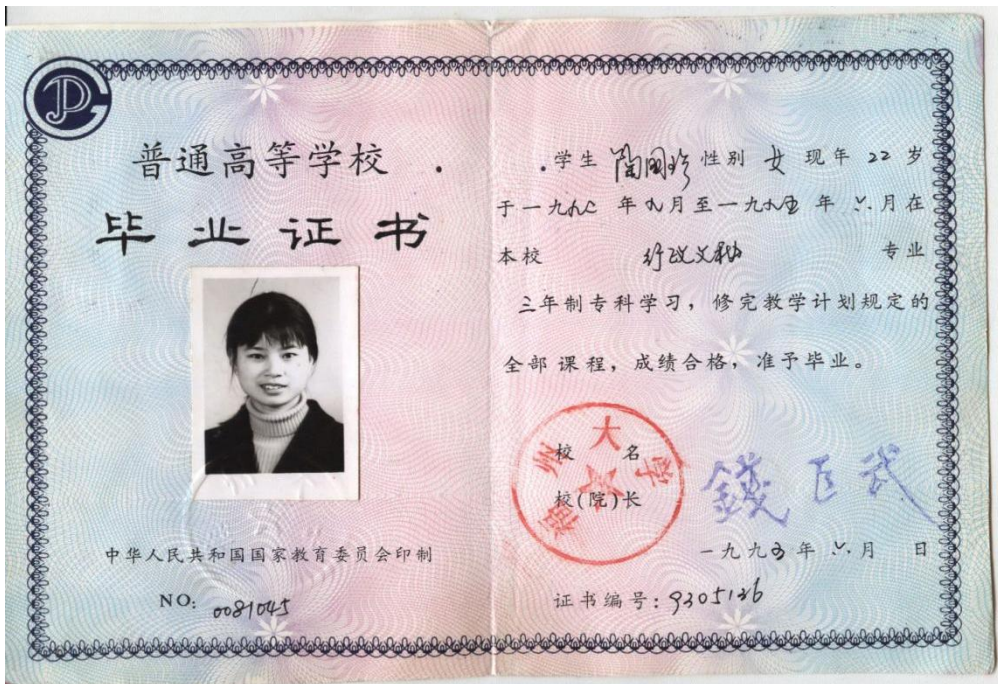 普通高等学校
毕业证书
中华人民共和国国家教育委员会印制
NO: 0081045
学生 陶国珍 性别 女 现年 22 岁
于一九九二 年 九月至一九九五 年 六月在
本校 行政文秘 专业
三年制专科学习,修完教学计划规定的
全部课程,成绩合格,准予毕业。
福州大学
校 名
校(院)长
一九九五年 六月 日
证书编号:9305126